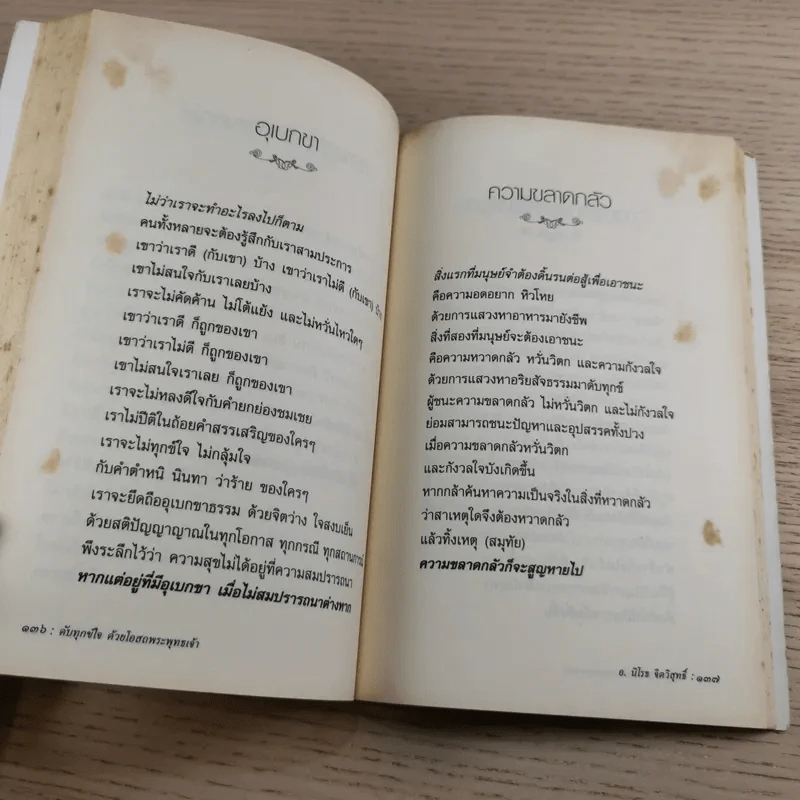 อุเบกขา
ไม่ว่าเราจะทำอะไรลงไปก็ตาม
คนทั้งหลายจะต้องรู้สึกกับเราสามประการ
เขาว่าเราดี (กับเขา) บ้าง เขาว่าเราไม่ดี (กับเขา) บ้าง
เขาไม่สนใจกับเราเลยบ้าง
เราจะไม่คัดค้าน ไม่โต้แย้ง และไม่หวั่นไหวใดๆ
เขาว่าเราดี ก็ถูกของเขา
เขาว่าเราไม่ดี ก็ถูกของเขา
เขาไม่สนใจเราเลย ก็ถูกของเขา
เราจะไม่หลงดีใจกับคำยกย่องชมเชย
เราไม่ปีติในถ้อยคำสรรเสริญของใครๆ
เราจะไม่ทุกข์ใจ ไม่กลุ้มใจ
กับคำตำหนิ นินทา ว่าร้าย ของใครๆ
เราจะยึดถืออุเบกขาธรรม ด้วยจิตว่าง ใจสงบเย็น
ด้วยสติปัญญาญาณในทุกโอกาส ทุกกรณี ทุกสถานการณ์
พึงระลึกไว้ว่า ความสุขไม่ได้อยู่ที่ความสมปรารถนา
หากแต่อยู่ที่มีอุเบกขา เมื่อไม่สมปรารถนาต่างหาก
๑๓๖ : ดับทุกข์ใจ ด้วยโอสถพระพุทธเจ้า
ความขลาดกลัว
สิ่งแรกที่มนุษย์จำต้องดิ้นรนต่อสู้เพื่อเอาชนะ
คือความอดอยาก หิวโหย
ด้วยการแสวงหาอาหารมายังชีพ
สิ่งที่สองที่มนุษย์จะต้องเอาชนะ
คือความหวาดกลัว หวั่นวิตก และความกังวลใจ
ด้วยการแสวงหาอริยสัจธรรมมาดับทุกข์
ผู้ชนะความขลาดกลัว ไม่หวั่นวิตก และไม่กังวลใจ
ย่อมสามารถชนะปัญหาและอุปสรรคทั้งปวง
เมื่อความขลาดกลัวหวั่นวิตก
และกังวลใจบังเกิดขึ้น
หากกล้าค้นหาความเป็นจริงในสิ่งที่หวาดกลัว
ว่าสาเหตุใดจึงต้องหวาดกลัว
แล้วทิ้งเหตุ (สมุทัย)
ความขลาดกลัวก็จะสูญหายไป
อ. นิโรธ จิตวิสุทธิ์ : ๑๓๗